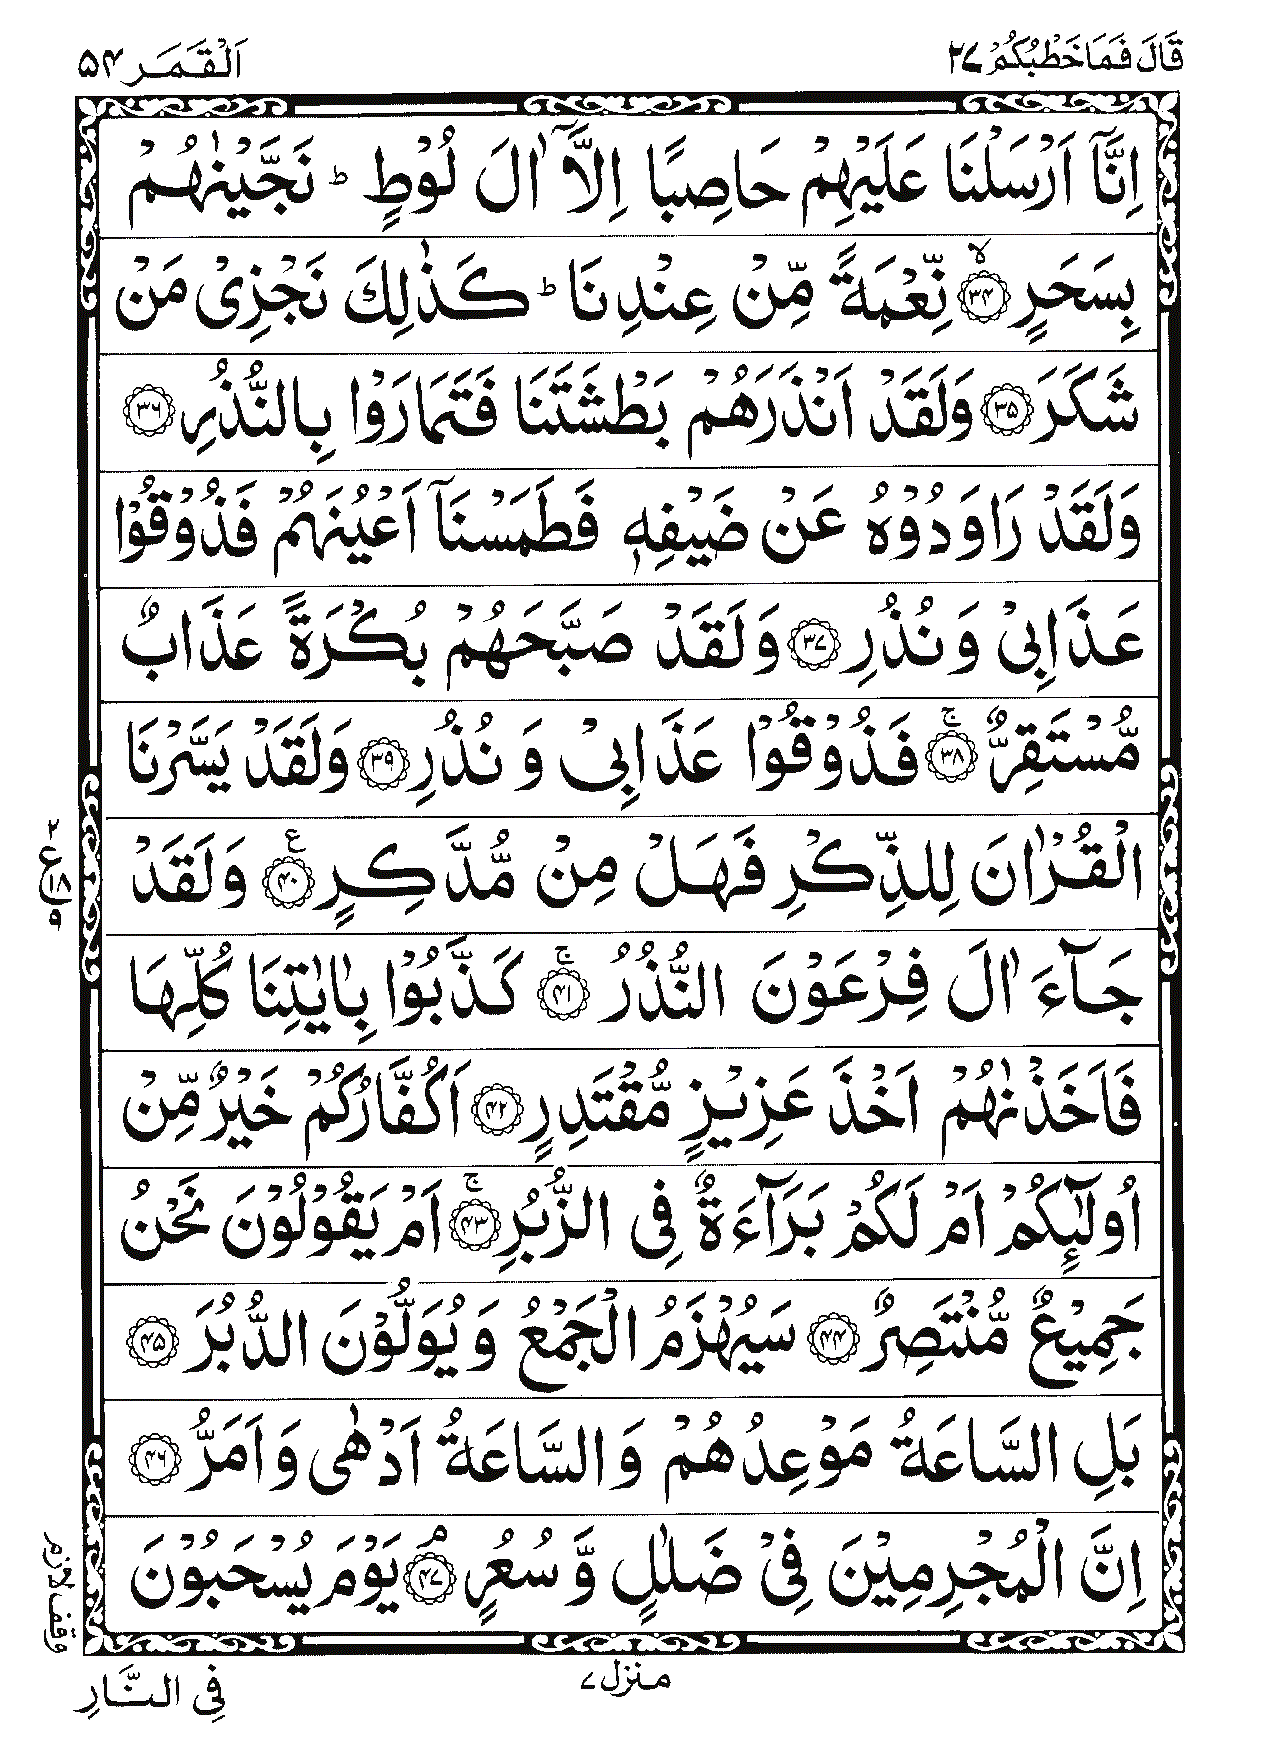 قَالَ فَمَا خَطْبُكُمْ ٢٧
اَلْقَمَر ٥٤
اِنَّاۤ اَرْسَلْنَا عَلَيْهِمْ حَاصِبًا اِلَّاۤ اٰلَ لُوْطٍ ؕ نَجَّيْنٰهُمْ
بِسَحَرٍ ۙ﴿۳۴﴾ نِّعْمَةً مِّنْ عِنْدِنَا ؕ كَذٰلِكَ نَجْزِیْ مَنْ
شَكَرَ ﴿۳۵﴾ وَلَقَدْ اَنْذَرَهُمْ بَطْشَتَنَا فَتَمَارَوْا بِالنُّذُرِ ﴿۳۶﴾
وَلَقَدْ رَاوَدُوْهُ عَنْ ضَيْفِهٖ فَطَمَسْنَاۤ اَعْيُنَهُمْ فَذُوْقُوْا
عَذَابِیْ وَ نُذُرِ ﴿۳۷﴾ وَلَقَدْ صَبَّحَهُمْ بُكْرَةً عَذَابٌ
مُّسْتَقِرٌّ ۚ﴿۳۸﴾ فَذُوْقُوْا عَذَابِیْ وَ نُذُرِ ﴿۳۹﴾ وَلَقَدْ يَسَّرْنَا
الْقُرْاٰنَ لِلذِّكْرِ فَهَلْ مِنْ مُّدَّكِرٍ ﴿۴۰﴾ ع وَلَقَدْ
جَآءَ اٰلَ فِرْعَوْنَ النُّذُرُ ۚ﴿۴۱﴾ كَذَّبُوْا بِاٰيٰتِنَا كُلِّهَا
فَاَخَذْنٰهُمْ اَخْذَ عَزِيْزٍ مُّقْتَدِرٍ ﴿۴۲﴾ اَكُفَّارُكُمْ خَيْرٌ مِّنْ
اُولٰٓئِكُمْ اَمْ لَكُمْ بَرَآءَةٌ فِی الزُّبُرِ ۚ﴿۴۳﴾ اَمْ يَقُوْلُوْنَ نَحْنُ
جَمِيْعٌ مُّنْتَصِرٌ ﴿۴۴﴾ سَيُهْزَمُ الْجَمْعُ وَ يُوَلُّوْنَ الدُّبُرَ ﴿۴۵﴾
بَلِ السَّاعَةُ مَوْعِدُهُمْ وَ السَّاعَةُ اَدْهٰی وَ اَمَرُّ ﴿۴۶﴾
اِنَّ الْمُجْرِمِيْنَ فِیْ ضَلٰلٍ وَّ سُعُرٍ ۘ﴿۴۷﴾ يَوْمَ يُسْحَبُوْنَ
وقف لازم
منزل ٧
فِی النَّارِ